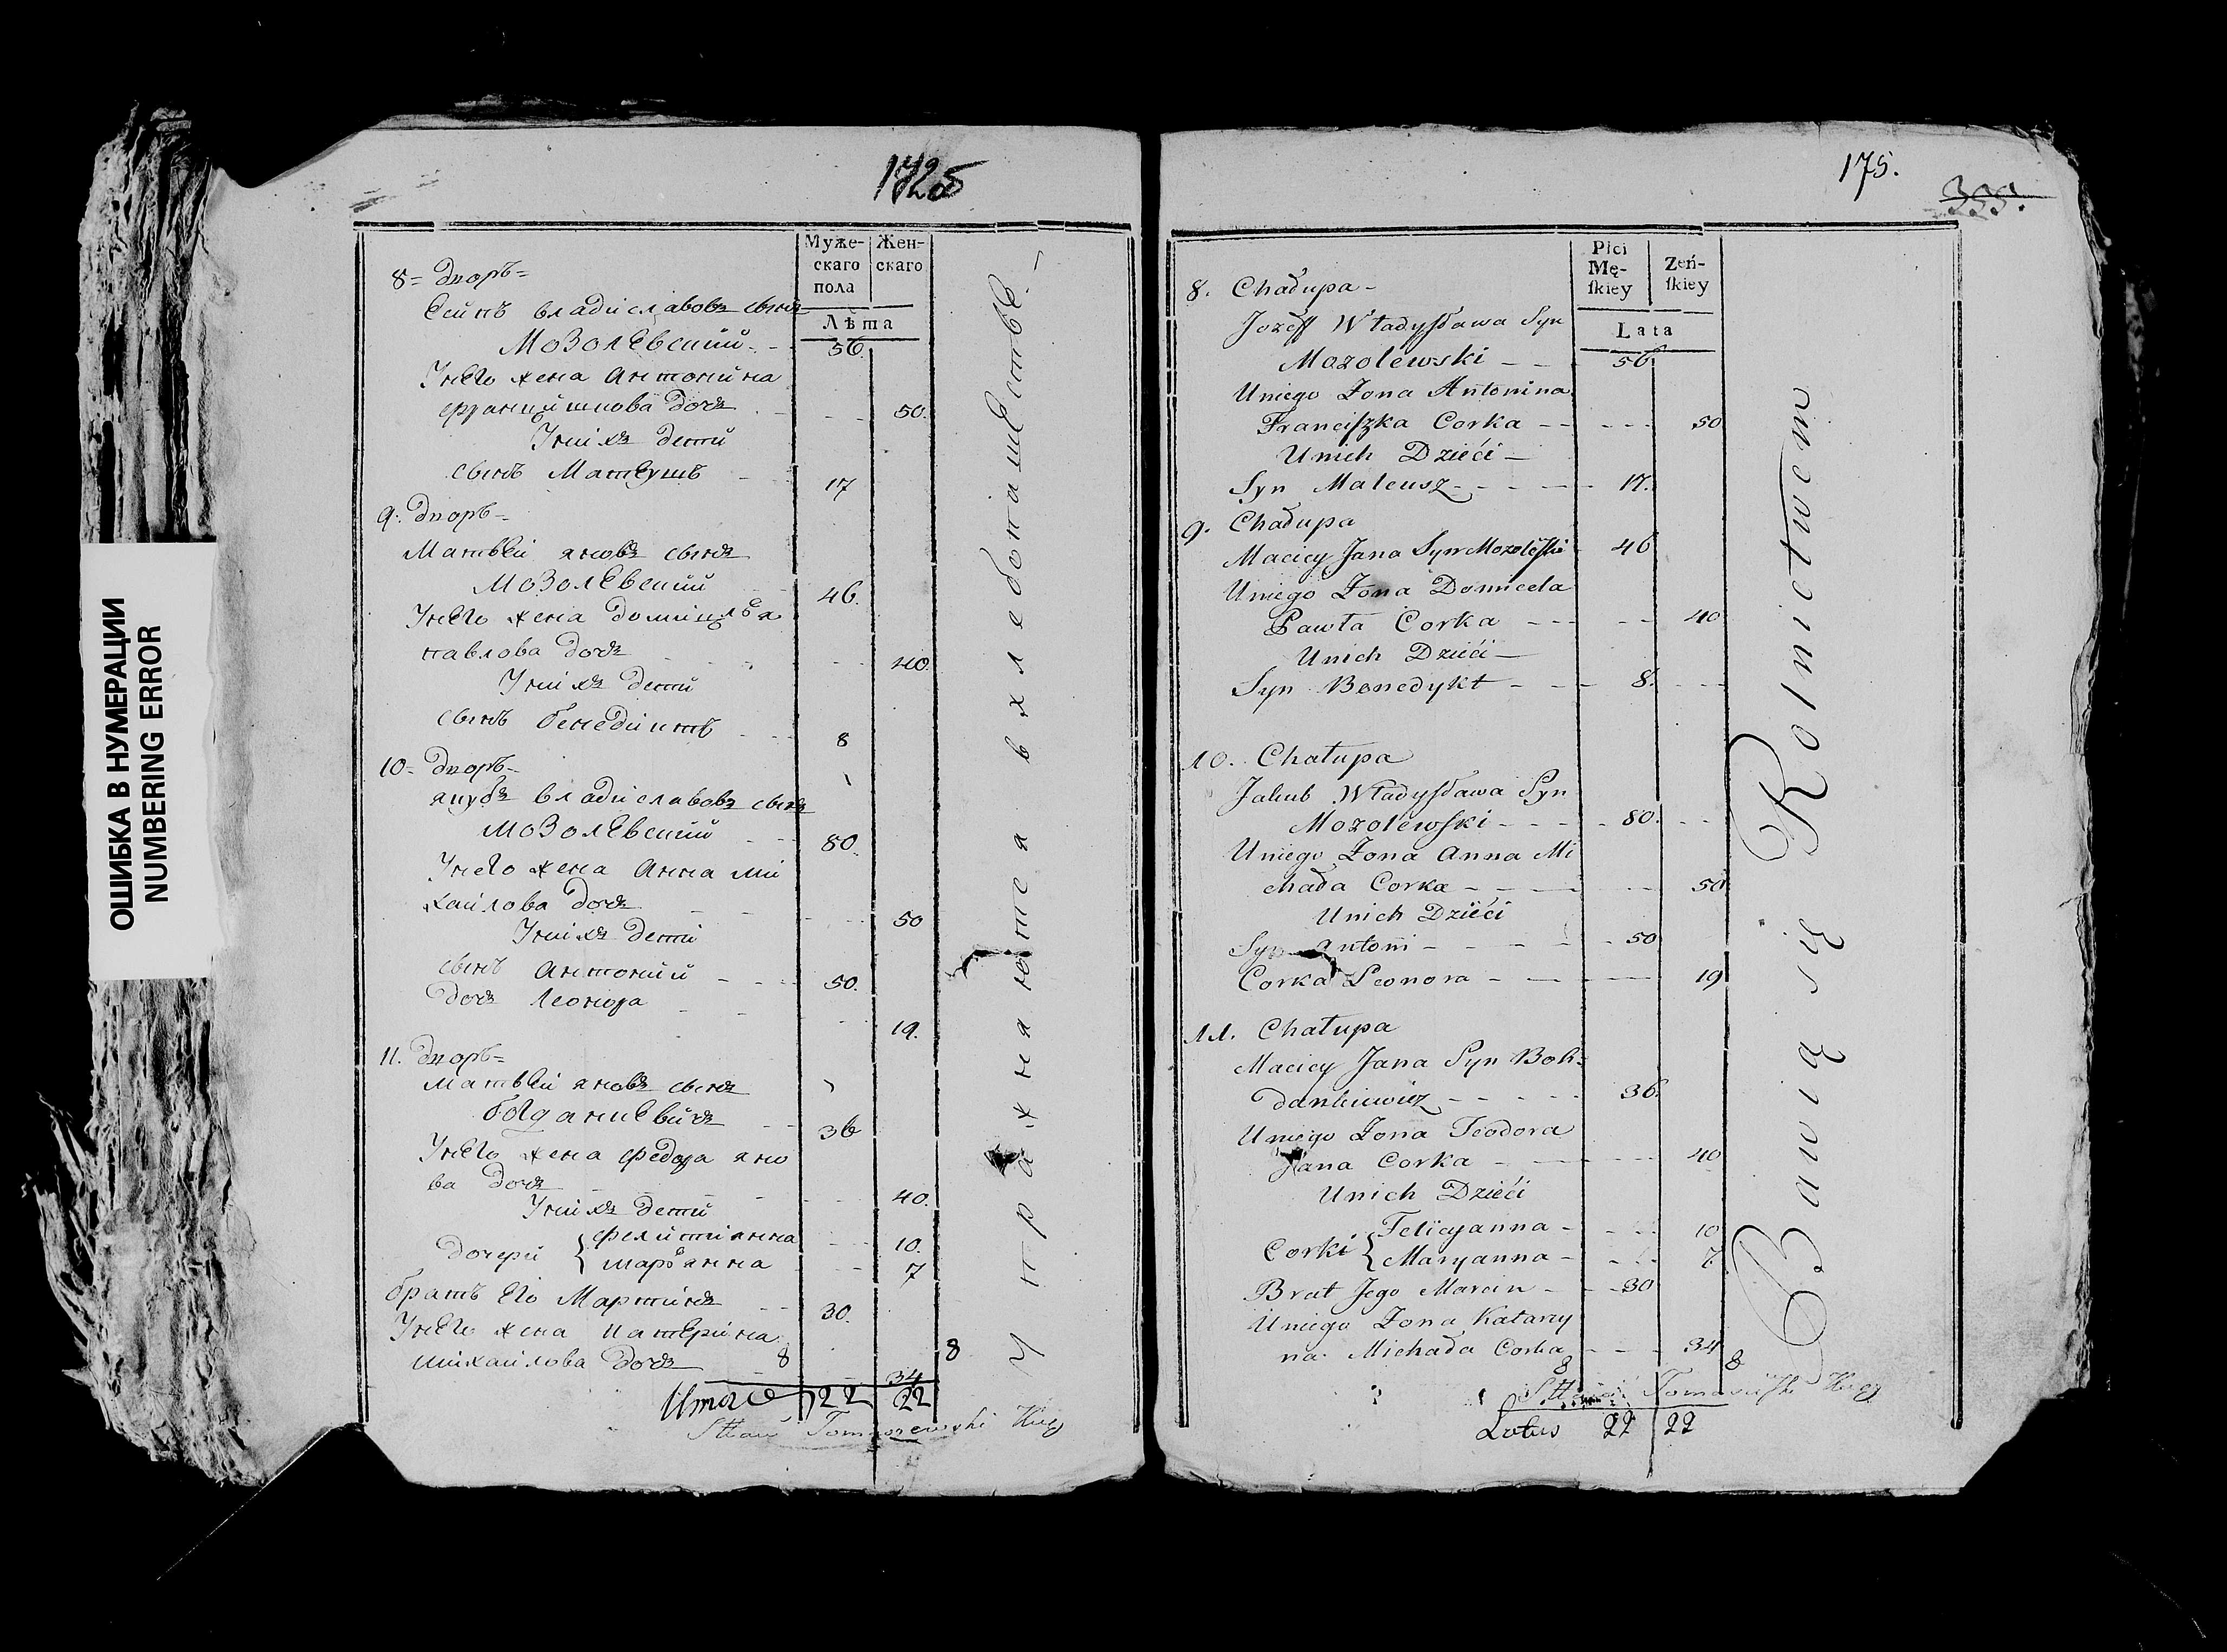 ОШИБКА В НУМЕРАЦИИ
NUMBERING ERROR
Муже-
скаго
пола
Жен-
скаго
Лѣта
8= дворъ=
владиславовъ сынъ
Мозолевский 56.
У него жена Антонина
доч 50.
У них дети
сынъ Матеушъ 17
9. дворъ=
Матвей янов сынъ
Мозолевский 46.
У него жена
павлова доч 40.
У них дети
сынъ бенедиктъ 8
10= дворъ=
якуб владиславовъ сынъ
Мозолевский 80.
У него жена Анна ми
хайлова доч 50
У них дети
сынъ Антоний 50.
доч Леонора 19.
11. дворъ=
Матвей янов сынъ
36
У него жена федора яно
ва доч 40.
У них дети
дочери { 10.
марьянна 7
братъ его Мартин 30.
У него жена катерина
михайлова доч 8 34 8
Итого 22 22
Tomaszewski
Упражняются в хлебопашестве.
175.
333.
Płci
Mę-
ſkiey
Zeń-
ſkiey
Lata
8. Chałupa -
Jozeff Władyſława Syn
Mozolewski - - 56
Uniego Żona Antonina
Franciſzka Corka - - 50
Unich Dzieći -
Syn Mateusz - - - 17.
9. Chałupa
Maciey Jana Syn Mozolewſki 46
Uniego Żona Domicela
Pawła Corka - - - 40
Unich Dzieći -
Syn Benedykt - - - 8.
10. Chałupa
Jakub Władyſława Syn
Mozolewſki - - - 80.
Uniego Żona Anna Mi
chała Corka - - - 50
Unich Dzieći
Syn Antoni - - - 50
Corka Leonora - - - 19
11. Chałupa
Maciey Jana Syn Boh=
dankiewicz - - - 36.
Uniego Żona Teodora
Jana Corka - - - 40
Unich Dzieći
Corki { Felicyanna - 10
Maryanna - 7.
Brat Jego Marcin - - 30
Uniego Żona Katarzy
na Michała Corka - - 34
8 8
Latus 22 22
Bawią się Rolnictwem